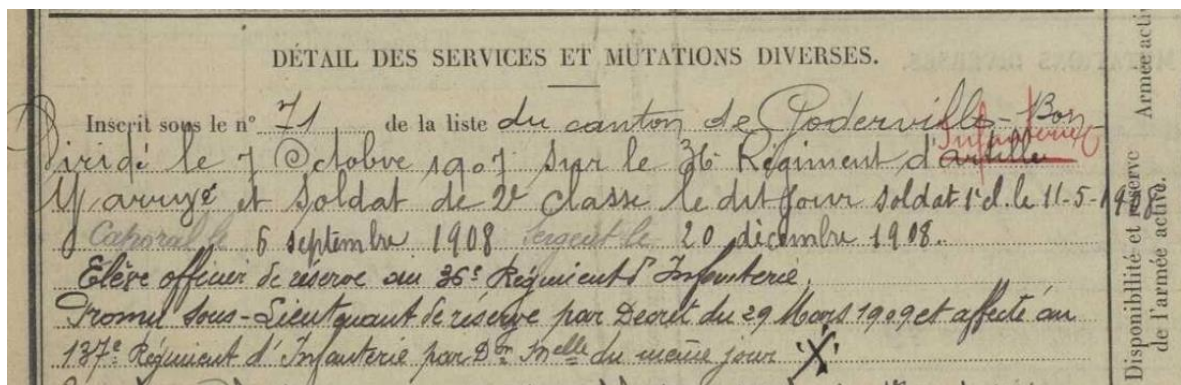 DÉTAIL DES SERVICES ET MUTATIONS DIVERSES.
Inscrit sous le n° 71 de la liste du canton de Goderville - Bon
Dirigé le 7 Octobre 1907 sur le 36e Régiment d'artille Infanterie
Y arrivé et Soldat de 2e Classe le dit jour soldat 1e cl. le 11-5-1908
Caporal le 6 septembre 1908 Sergent le 20 décembre 1908.
Elève officier de réserve au 36e Régiment d'Infanterie.
Promu Sous-Lieutenant de réserve par Decret du 29 Mars 1909 et affecté au
137e Régiment d'Infanterie par Don Melle du même jour X
Armée acti
Disponibilité et réserve
de l'armée active.